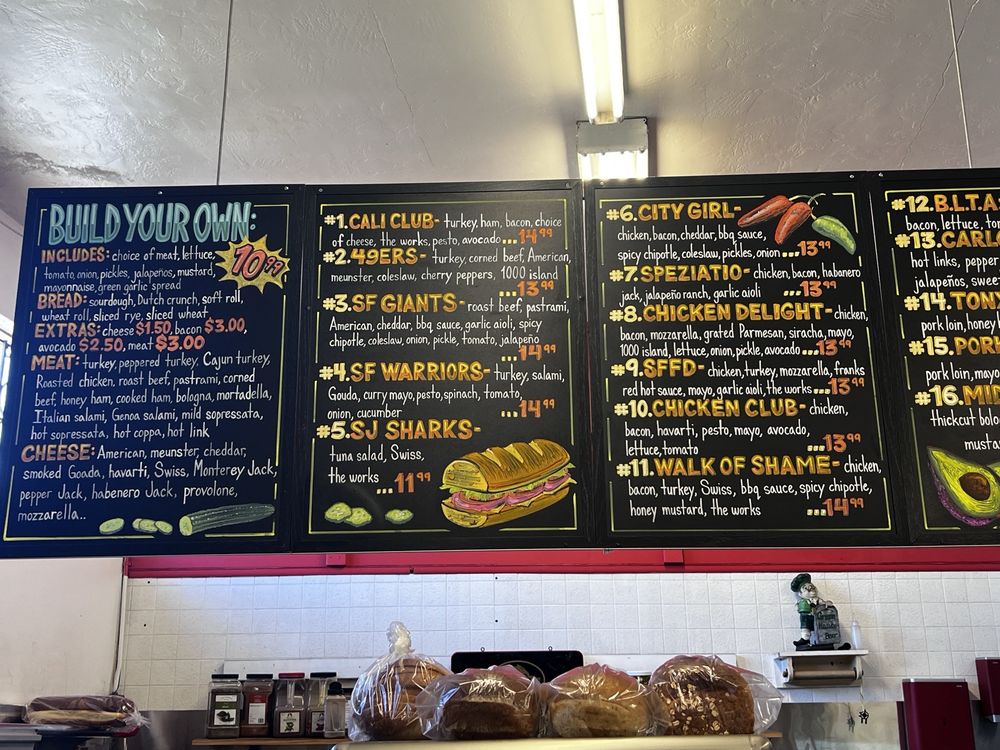 BUILD YOUR OWN:
10.99
INCLUDES: choice of meat, lettuce,
tomato, onion, pickles, jalapeños, mustard,
mayonnaise, green garlic spread
BREAD: sourdough, Dutch crunch, soft roll,
wheat roll, sliced rye, sliced wheat
EXTRAS: cheese $1.50, bacon $3.00,
avocado $2.50, meat $3.00
MEAT: turkey, peppered turkey, Cajun turkey,
Roasted chicken, roast beef, pastrami, corned
beef, honey ham, cooked ham, bologna, mortadella,
Italian salami, Genoa salami, mild sopressata,
hot sopressata, hot coppa, hot link
CHEESE: American, meunster, cheddar,
smoked Goada, havarti, Swiss, Monterey Jack,
pepper Jack, habenero Jack, provolone,
mozzarella..
#1. CALI CLUB- turkey, ham, bacon, choice
of cheese, the works, pesto, avocado...14.99
#2. 49ERS- turkey, corned beef, American,
meunster, coleslaw, cherry peppers, 1000 island
...13.99
#3. SF GIANTS- roast beef, pastrami,
American, cheddar, bbq sauce, garlic aioli, spicy
chipotle, coleslaw, onion, pickle, tomato, jalapeño
...14.99
#4. SF WARRIORS- turkey, salami,
Gouda, curry mayo, pesto, spinach, tomato,
onion, cucumber ...14.99
#5. SJ SHARKS-
tuna salad, Swiss,
the works ...11.99
#6. CITY GIRL-
chicken, bacon, cheddar, bbq sauce,
spicy chipotle, coleslaw, pickles, onion ...13.99
#7. SPEZIATIO- chicken, bacon, habanero
jack, jalapeño ranch, garlic aioli ...13.99
#8. CHICKEN DELIGHT- chicken,
bacon, mozzarella, grated Parmesan, siracha, mayo,
1000 island, lettuce, onion, pickle, avocado...13.99
#9. SFFD- chicken, turkey, mozzarella, franks
red hot sauce, mayo, garlic aioli, the works...13.99
#10. CHICKEN CLUB- chicken,
bacon, havarti, pesto, mayo, avocado,
lettuce, tomato ...13.99
#11. WALK OF SHAME- chicken,
bacon, turkey, Swiss, bbq sauce, spicy chipotle,
honey mustard, the works ...14.99
#12. B.L.T.A
bacon, lettuce, tom
#13. CARL
hot links, pepper
jalapeños, swee
#14. TON
pork loin, honey
#15. PORK
pork loin, mayo
#16. MI
thickcut bolo
musta